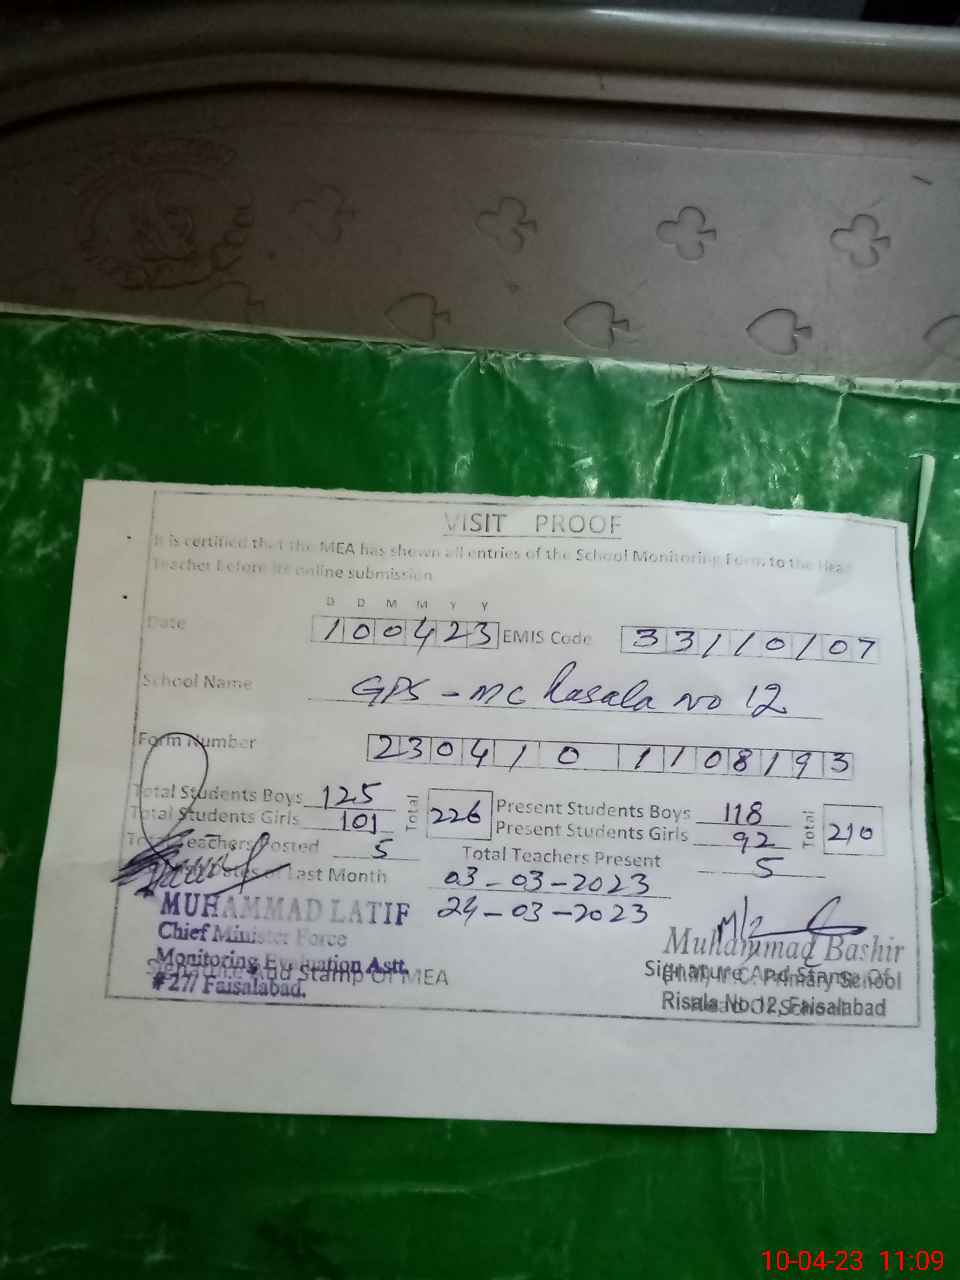 VISIT PROOF
It is certified that the MEA has shown all entries of the School Monitoring Form to the Head
Teacher before its online submission
D D M M Y Y
Date 100423 EMIS Code 33110107
School Name GPS - MC Rasala No 12
Form Number 230410 1108193
Total Students Boys 125 Total 226 Present Students Boys 118 Total 210
Total Students Girls 101 Present Students Girls 92
Teachers Posted 5 Total Teachers Present 5
Last Month 03-03-2023
24-03-2023
MUHAMMAD LATIF
Chief Minister Force
Monitoring Evaluation Astt.
#27/ Faisalabad.
Signature And Stamp Of MEA
Muhammad Bashir
Signature And Stamp Of
M.C. Primary School
Risala No. 12, Faisalabad
10-04-23 11:09